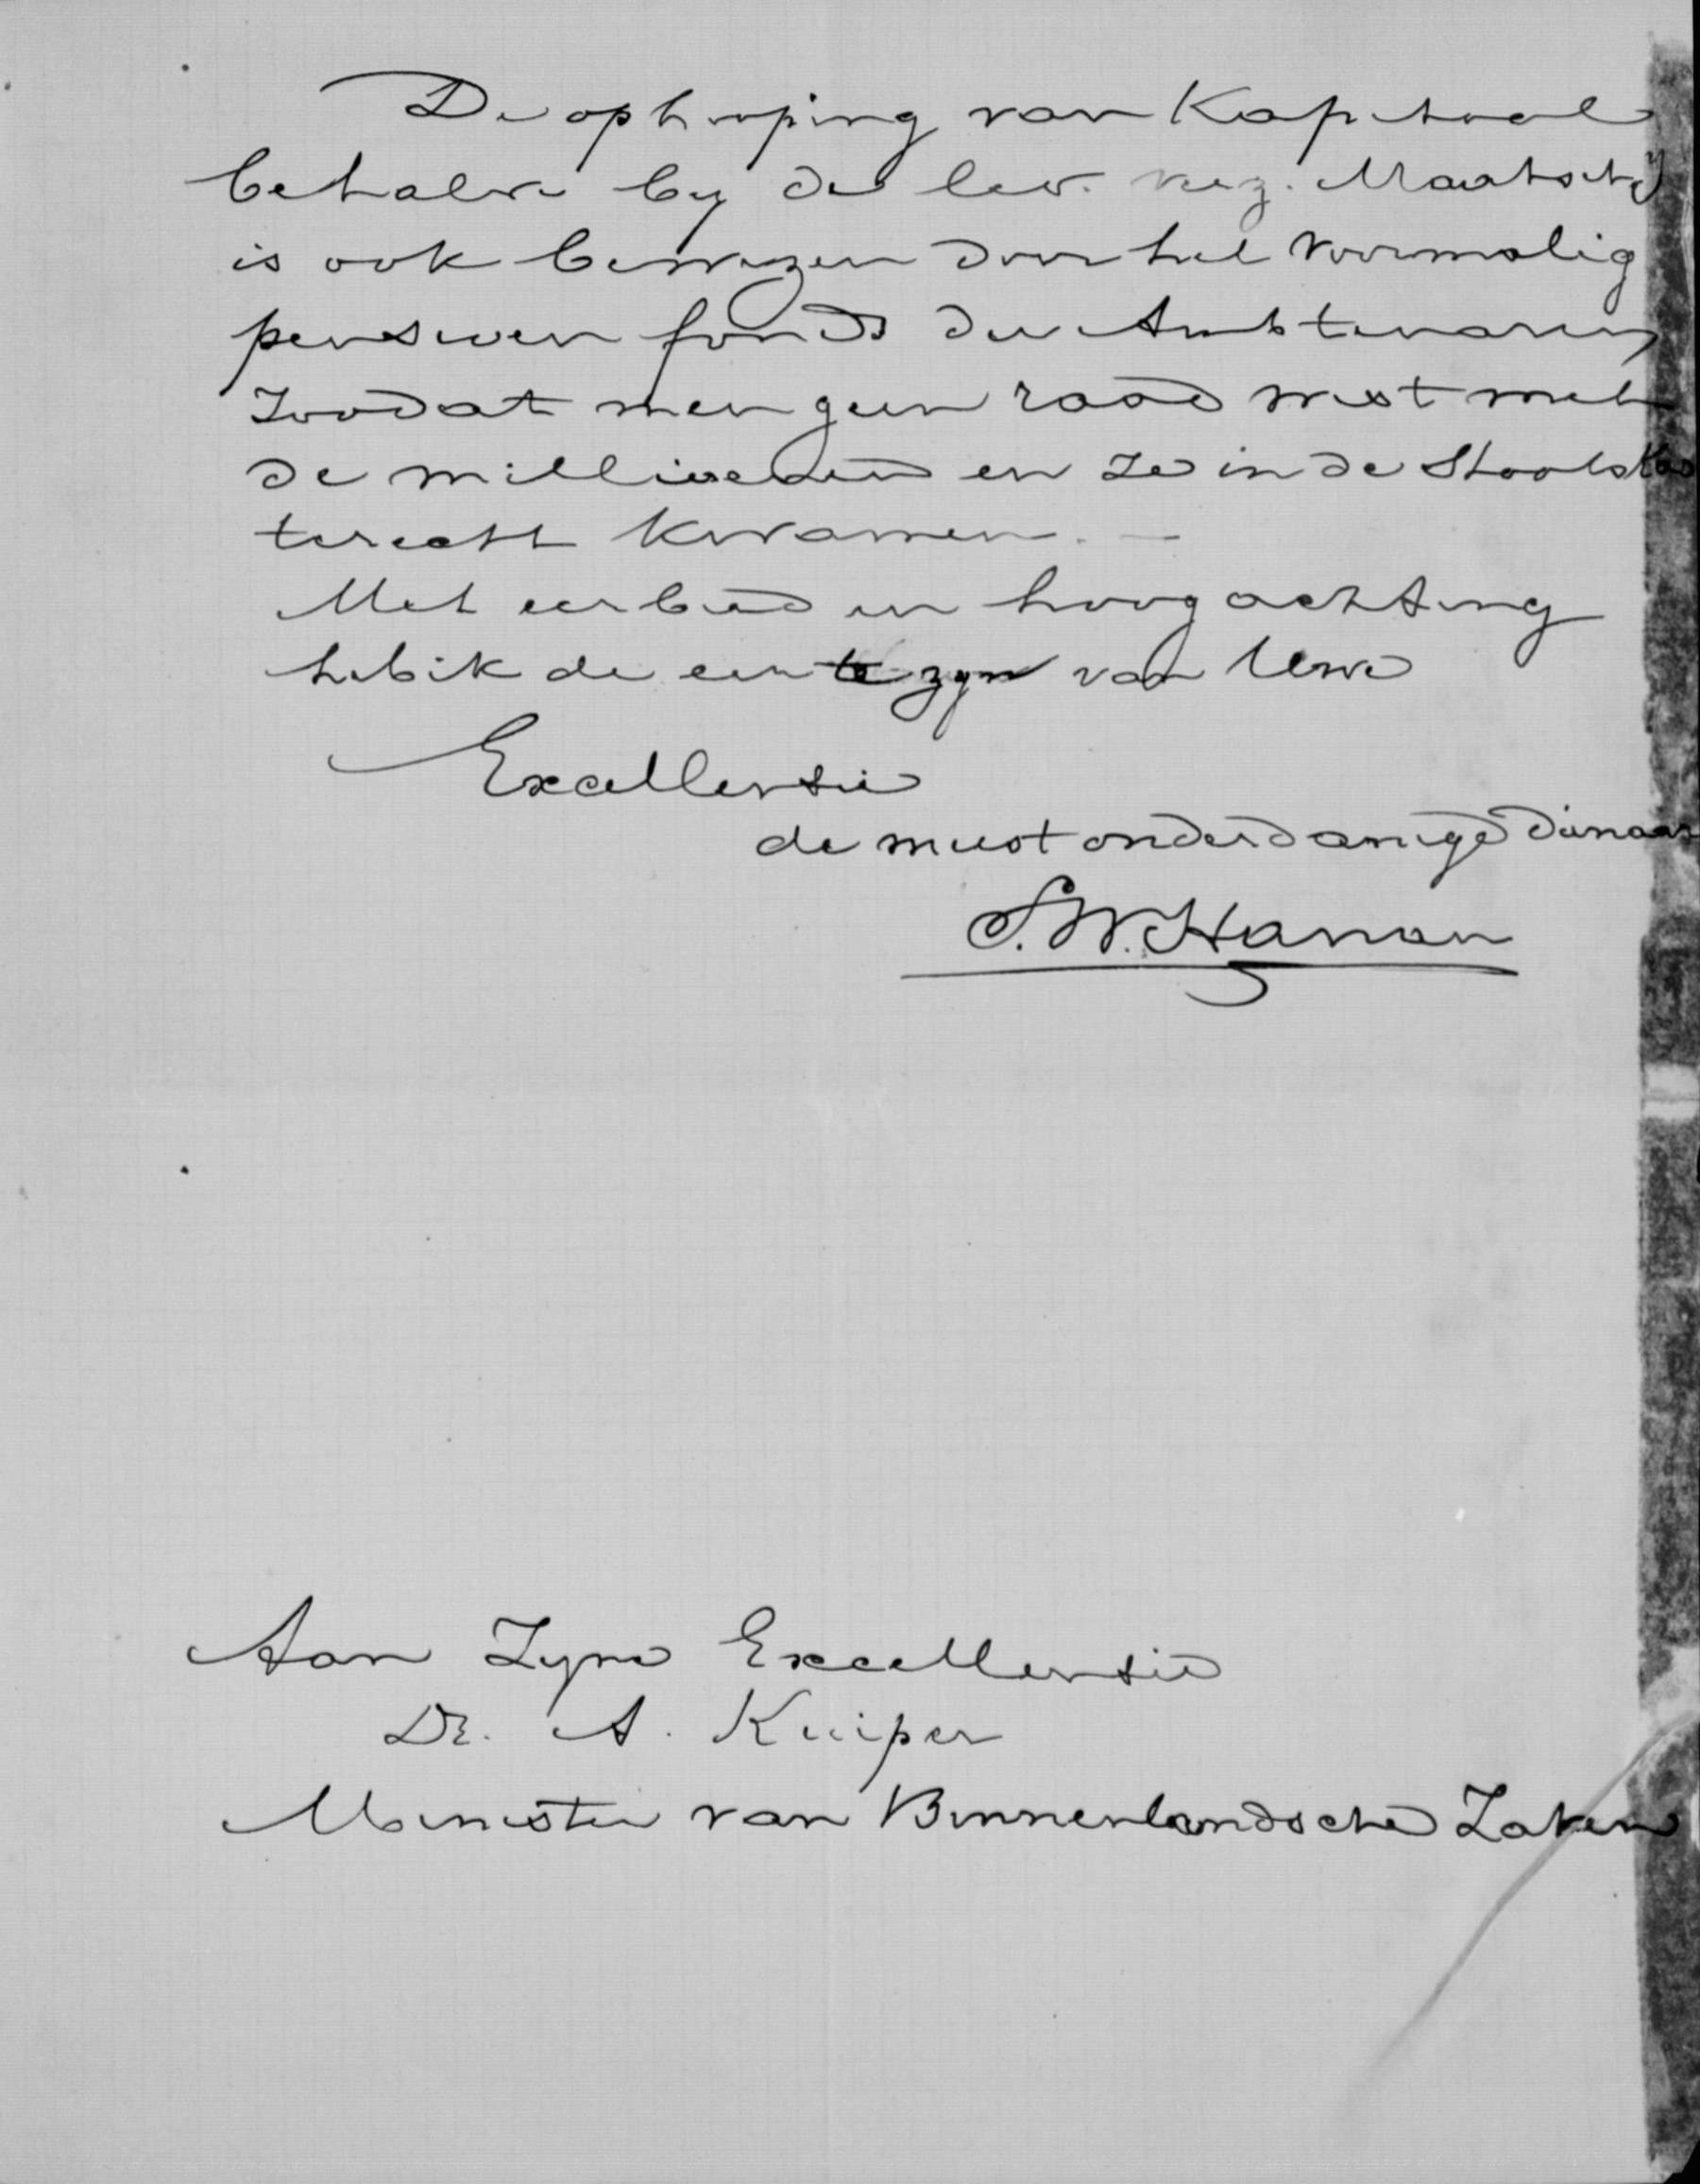 De ophooping van Kapitaal
behalve by de lev. verz. Maatschy
is ook bewezen door het voormalig
pensioen fonds der Ambtenaren
zoodat men geen raad wist met
de millioenen en ze in de Staatskas
terecht kwamen. —
Met eerbied en hoogachting
heb ik de eer te zyn van Uwe
Excellentie
de meest onderdanige dienaar
S. W. Hanau
Aan Zyne Excellentie
Dr. A. Kuiper
Minister van Binnenlandsche Zaken